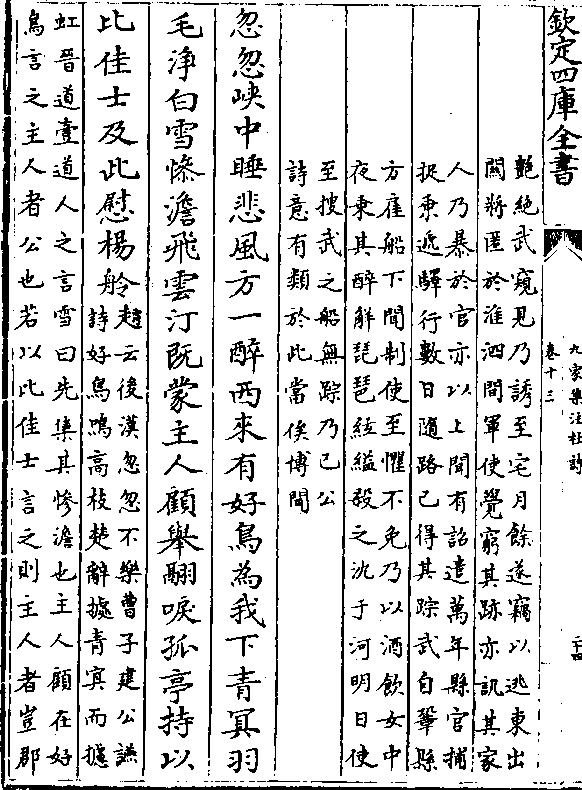 欽定四庫全書
九家集注杜詩
卷十三
二十四
艷絶武窺見乃誘至宅月餘遂竊以逃東出
關將匿於淮泗間軍使覺窮其跡亦訊其家
人乃暴於官亦以上聞有詔遣萬年縣官捕
捉乘遞驛行數日隨路已得其踪武自鞏縣
方雇船下聞制使至懼不免乃以酒飲女中
夜乘其醉解琵琶絃縊殺之沈于河明日使
至搜武之船無踪乃已公
詩意有類於此當俟博聞
忽忽峽中睡悲風方一醉西來有好鳥為我下青冥羽
毛淨白雪慘澹飛雲汀既蒙主人顧舉翮唳孤亭持以
比佳士及此慰楊舲
趙云後漢忽忽不樂曹子建公讌
詩好鳥鳴高枝楚辭攄青冥而攄
虹晉道壹道人之言雪曰先集其慘澹也主人顧在好
鳥言之主人者公也若以比佳士言之則主人者豈郡